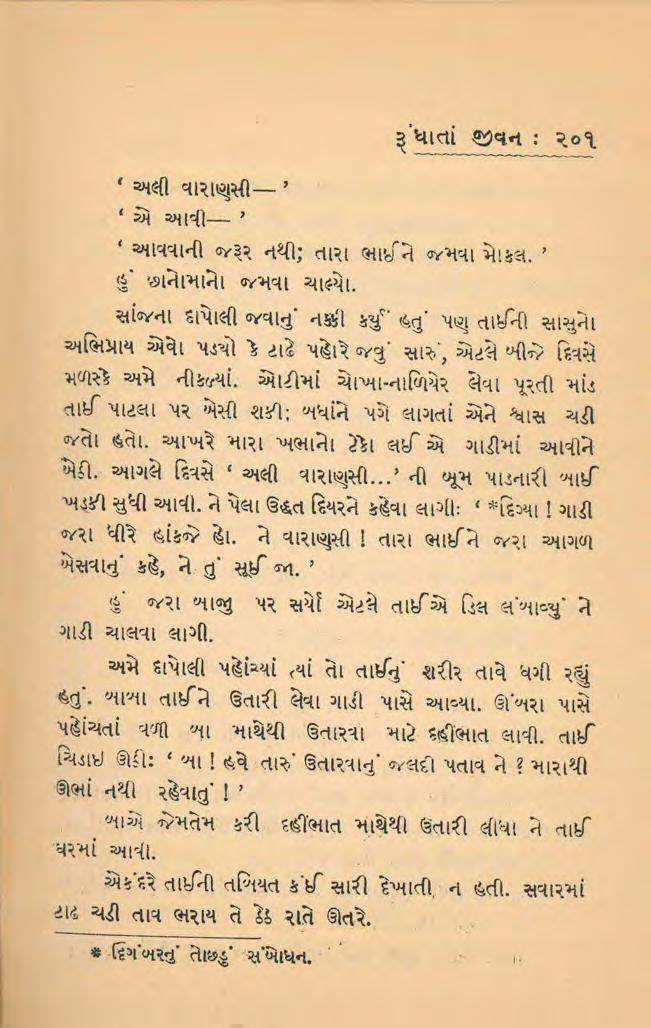 રૂંધાતાં જીવન : ૨૦૧
‘ અલી વારાણસી— ’
‘ એ આવી— ’
‘ આવવાની જરૂર નથી; તારા ભાઈને જમવા મોકલ. ’
હું છાનોમાનો જમવા ચાલ્યો.
સાંજના દાપોલી જવાનું નક્કી કર્યું હતું પણ તાઈની સાસુનો
અભિપ્રાય એવો પડ્યો કે ટાઢે પહોરે જવું સારું, એટલે બીજે દિવસે
મળસ્કે અમે નીકળ્યાં. ઓટીમાં ચોખા-નાળિયેર લેવા પૂરતી માંડ
તાઈ પાટલા પર બેસી શકી; બધાંને પગે લાગતાં એને શ્વાસ ચડી
જતો હતો. આખરે મારા ખભાનો ટેકો લઈ એ ગાડીમાં આવીને
બેઠી. આગલે દિવસે ‘ અલી વારાણસી...’ ની બૂમ પાડનારી બાઈ
ખડકી સુધી આવી. ને પેલા ઉદ્ધત દિયરને કહેવા લાગીઃ ‘ *દિગ્યા ! ગાડી
જરા ધીરે હાંકજે હો. ને વારાણસી ! તારા ભાઈને જરા આગળ
બેસવાનું કહે, ને તું સૂઈ જા. ’
હું જરા બાજુ પર સર્યો એટલે તાઈએ ડિલ લંબાવ્યું ને
ગાડી ચાલવા લાગી.
અમે દાપોલી પહોંચ્યાં ત્યાં તો તાઈનું શરીર તાવે ધગી રહ્યું
હતું. બાબા તાઈને ઉતારી લેવા ગાડી પાસે આવ્યા. ઊંબરા પાસે
પહોંચતાં વળી બા માથેથી ઉતારવા માટે દહીંભાત લાવી. તાઈ
ચિડાઇ ઊઠીઃ ‘ બા ! હવે તારું ઉતારવાનું જલદી પતાવ ને ? મારાથી
ઊભાં નથી રહેવાતું ! ’
બાએ જેમતેમ કરી દહીંભાત માથેથી ઉતારી લીધા ને તાઈ
ઘરમાં આવી.
એકંદરે તાઈની તબિયત કંઈ સારી દેખાતી ન હતી. સવારમાં
ટાઢ ચડી તાવ ભરાય તે ઠેઠ રાતે ઊતરે.
* દિગંબરનું તોછડું સંબોધન.